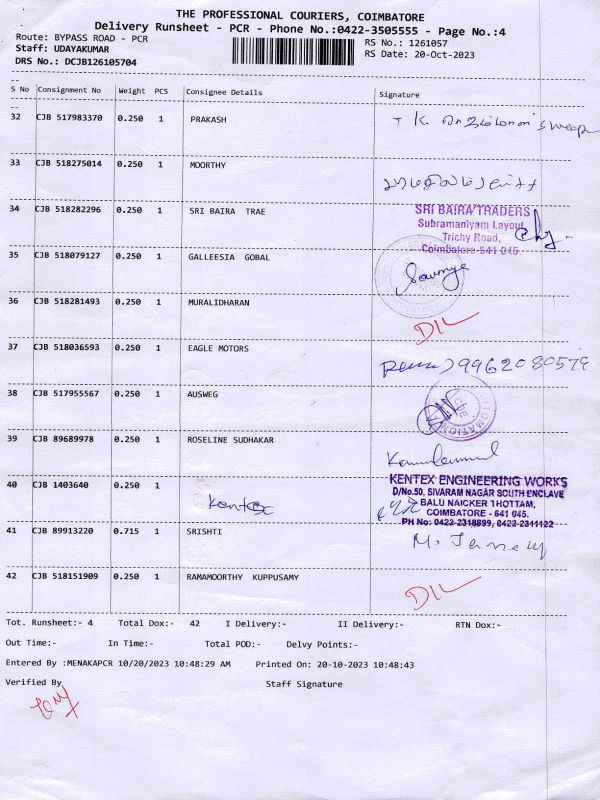 THE PROFESSIONAL COURIERS, COIMBATORE
Delivery Runsheet - PCR - Phone No.:0422-3505555 - Page No.:4
Route: BYPASS ROAD - PCR
RS No.: 1261057
Staff: UDAYAKUMAR
RS Date: 20-Oct-2023
DRS No.: DCJB126105704
S No Consignment No Weight PCS Consignee Details Signature
32 CJB 517983370 0.250 1 PRAKASH
33 CJB 518275014 0.250 1 MOORTHY
34 CJB 518282296 0.250 1 SRI BAIRA TRAE
SRI BAIRA TRADERS
Subramaniyam Layout,
Trichy Road,
Coimbatore-641 045.
35 CJB 518079127 0.250 1 GALLEESIA GOBAL
Sowmya
36 CJB 518281493 0.250 1 MURALIDHARAN
DIL
37 CJB 518036593 0.250 1 EAGLE MOTORS
9962080579
38 CJB 517955567 0.250 1 AUSWEG
39 CJB 89689978 0.250 1 ROSELINE SUDHAKAR
40 CJB 1403640 0.250 1 Kentex
KENTEX ENGINEERING WORKS
D/No.50, SIVARAM NAGAR SOUTH ENCLAVE
BALU NAICKER THOTTAM,
COIMBATORE - 641 045.
PH No: 0422-2318899, 0422-2311122
41 CJB 89913220 0.715 1 SRISHTI
42 CJB 518151909 0.250 1 RAMAMOORTHY KUPPUSAMY
DIL
Tot. Runsheet:- 4 Total Dox:- 42 I Delivery:- II Delivery:- RTN Dox:-
Out Time:- In Time:- Total POD:- Delvy Points:-
Entered By :MENAKAPCR 10/20/2023 10:48:29 AM Printed On: 20-10-2023 10:48:43
Verified By Staff Signature